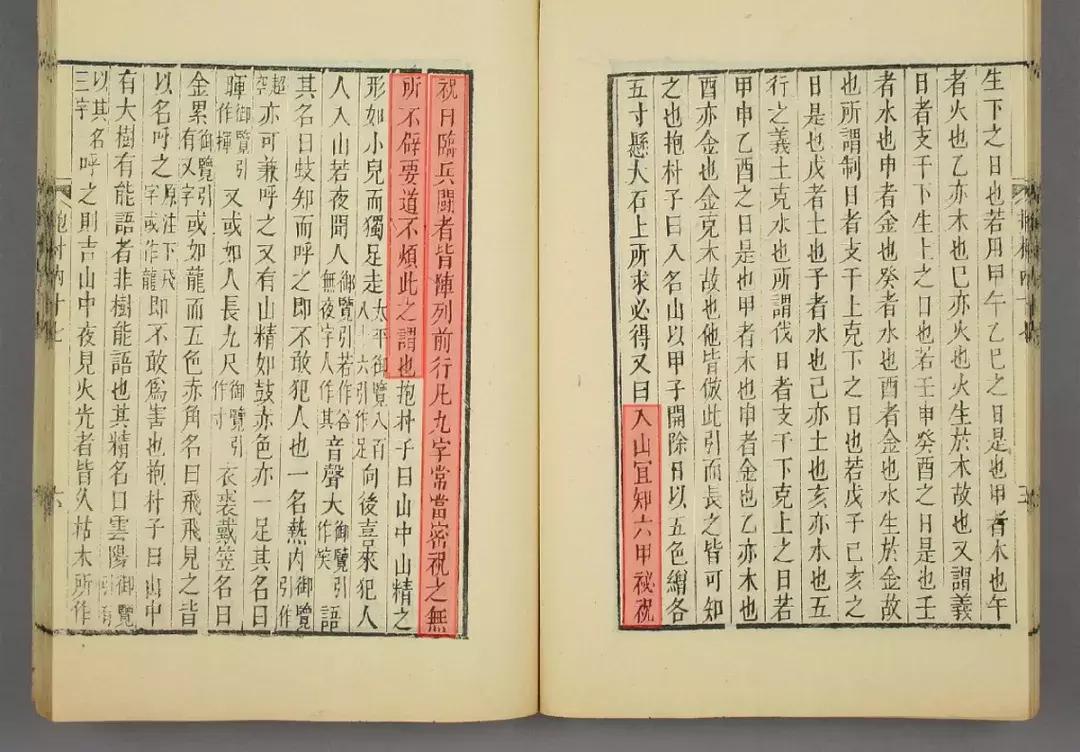 生下之日也若用甲午乙巳之日是也甲者木也午
者火也乙亦木也巳亦火也火生於木故也又謂義
日者支干下生上之日也若壬申癸酉之日是也壬
者水也申者金也癸者水也酉者金也水生於金故
也所謂制日者支干上克下之日也若戊子己亥之
日是也戊者土也子者水也己亦土也亥亦水也五
行之義土克水也所謂伐日者支干下克上之日若
甲申乙酉之日是也甲者木也申者金也乙亦木也
酉亦金也金克木故也他皆倣此引而長之皆可知
之也抱朴子曰入名山以甲子開除日以五色繒各
五寸懸大石上所求必得又曰入山宜知六甲祕祝
祝曰臨兵鬭者皆陣列前行凡九字常當密祝之無
所不辟要道不煩此之謂也抱朴子曰山中山精之
形如小兒而獨足走太平御覽八百八十六引作足向後喜來犯人
人入山若夜聞人御覽引若作谷無夜字人作其音聲大御覽引作笑語
其名曰蚑知而呼之即不敢犯人也一名熱內御覽引作
超空亦可兼呼之又有山精如鼓赤色亦一足其名曰
暉御覽引作揮又或如人長九尺御覽引作寸衣裘戴笠名曰
金累御覽引有又字或如龍而五色赤角名曰飛飛見之皆
以名呼之原注下飛字或作龍即不敢為害也抱朴子曰山中
有大樹有能語者非樹能語也其精名曰雲陽御覽引有
以其名三字呼之則吉山中夜見火光者皆久枯木所作
抱朴內十七
六